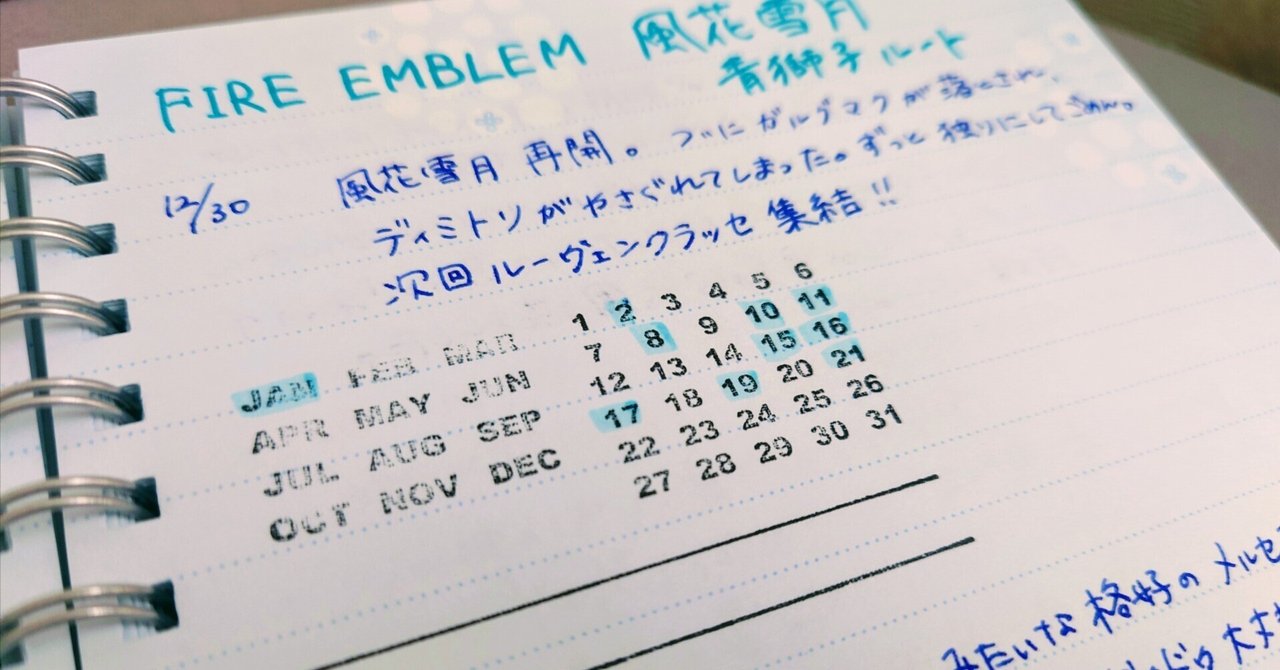 FIRE EMBLEM 風花雪月
青獅子ルート
12/30 風花雪月 再開。ついにガルグマクが落とされ、
ディミトリがやさぐれてしまった。ずっと独りにしてごめん。
次回 ルーヴェンクラッセ 集結!!
JAN FEB MAR 1 2 3 4 5 6
APR MAY JUN 7 8 9 10 11
JUL AUG SEP 12 13 14 15 16
OCT NOV DEC 17 18 19 20 21
22 23 24 25 26
27 28 29 30 31
みたいな格好のメルセ
大丈